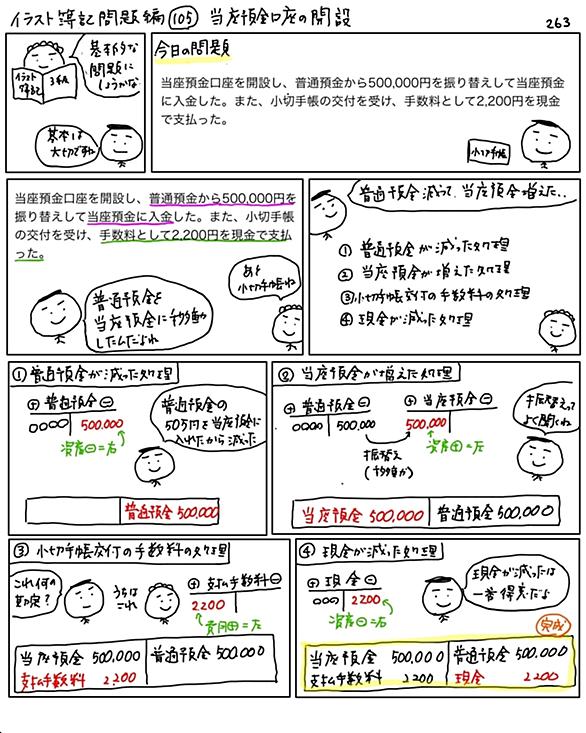 イラスト簿記問題編 105 当座預金口座の開設
263
基本的な
問題に
しようかな
イラスト
簿記
3級
基本は
大切ですね
今日の問題
当座預金口座を開設し、普通預金から500,000円を振り替えして当座預金
に入金した。また、小切手帳の交付を受け、手数料として2,200円を現金
で支払った。
小切手帳
当座預金口座を開設し、普通預金から500,000円を
振り替えして当座預金に入金した。また、小切手帳
の交付を受け、手数料として2,200円を現金で支払
った。
普通預金を
当座預金に移動
したんだよね
あと
小切手帳ね
普通預金減って、当座預金増えた..
① 普通預金が減った処理
② 当座預金が増えた処理
③ 小切手帳交付の手数料の処理
④ 現金が減った処理
① 普通預金が減った処理
⊕ 普通預金 ⊖
0000 500,000
資産⊖=右
普通預金の
50万円を当座預金に
入れたから減った
普通預金 500,000
② 当座預金が増えた処理
⊕ 普通預金 ⊖
0000 500,000
⊕ 当座預金 ⊖
500,000
資産⊕=左
振替え
(移動)
振替えって
よく聞くね
当座預金 500,000 普通預金 500,000
③ 小切手帳交付の手数料の処理
これ何の
勘定?
うちは
これ
⊕ 支払手数料 ⊖
2200
費用⊕=左
当座預金 500,000 普通預金 500,000
支払手数料 2,200
④ 現金が減った処理
⊕ 現金 ⊖
000 2200
資産⊖=右
現金が減ったは
一番得意だよ
完成
当座預金 500,000 普通預金 500,000
支払手数料 2200 現金 2200